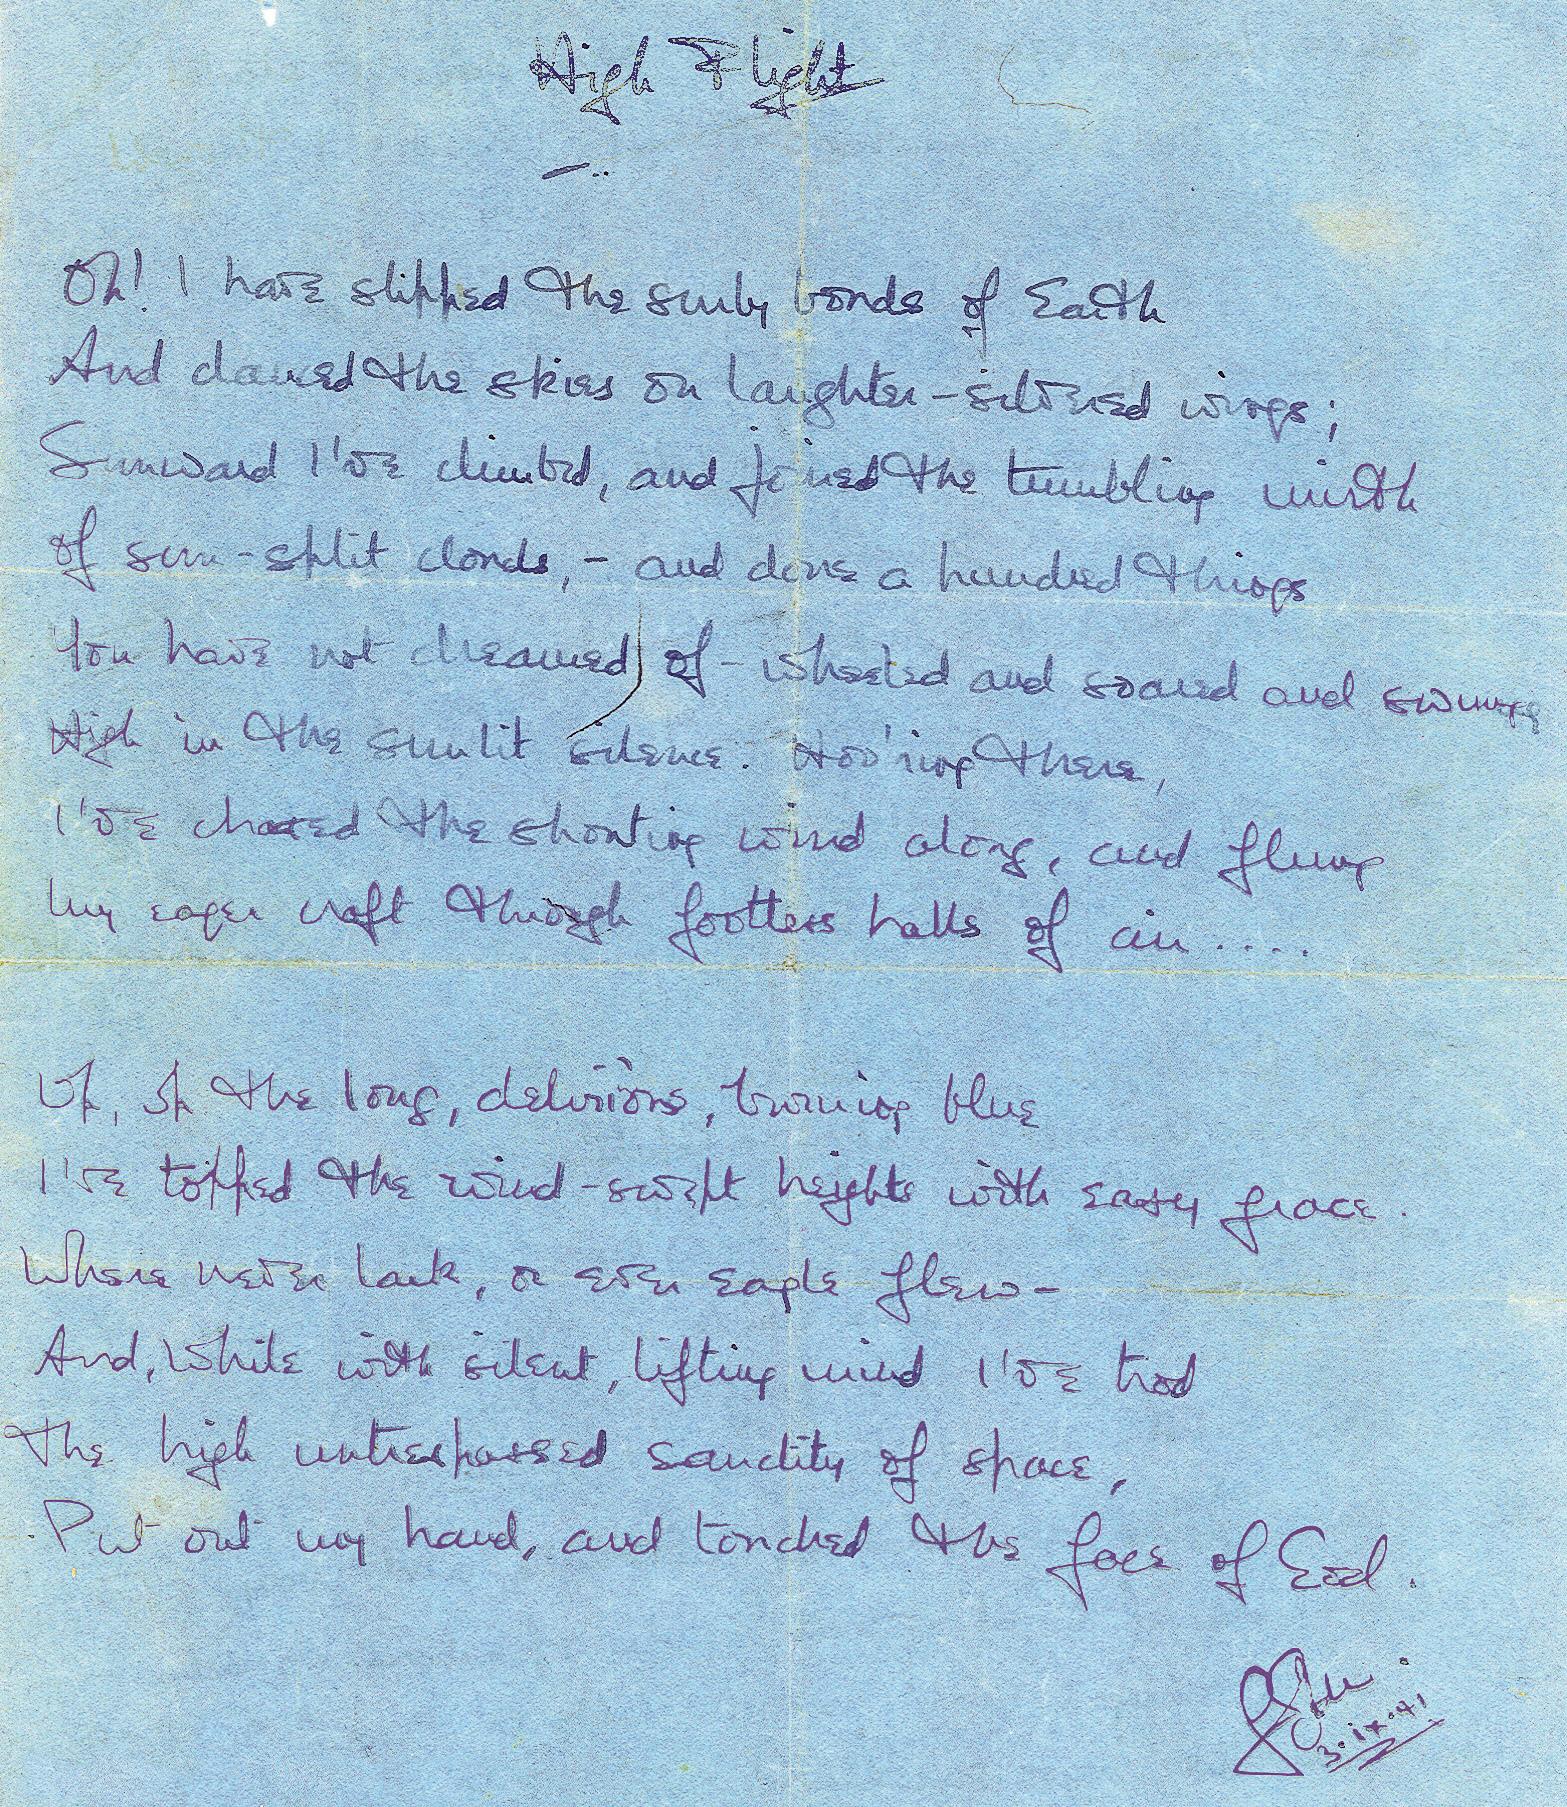 High Flight
Oh! I have slipped the surly bonds of Earth
And danced the skies on laughter-silvered wings;
Sunward I've climbed, and joined the tumbling mirth
of sun-split clouds, - and done a hundred things
You have not dreamed of - wheeled and soared and swung
High in the sunlit silence. Hov'ring there,
I've chased the shouting wind along, and flung
My eager craft through footless halls of air ....
Up, up the long, delirious, burning blue
I've topped the wind-swept heights with easy grace.
Where never lark, or ever eagle flew -
And, while with silent, lifting mind I've trod
The high untrespassed sanctity of space,
Put out my hand, and touched the face of God.
3.IX.41